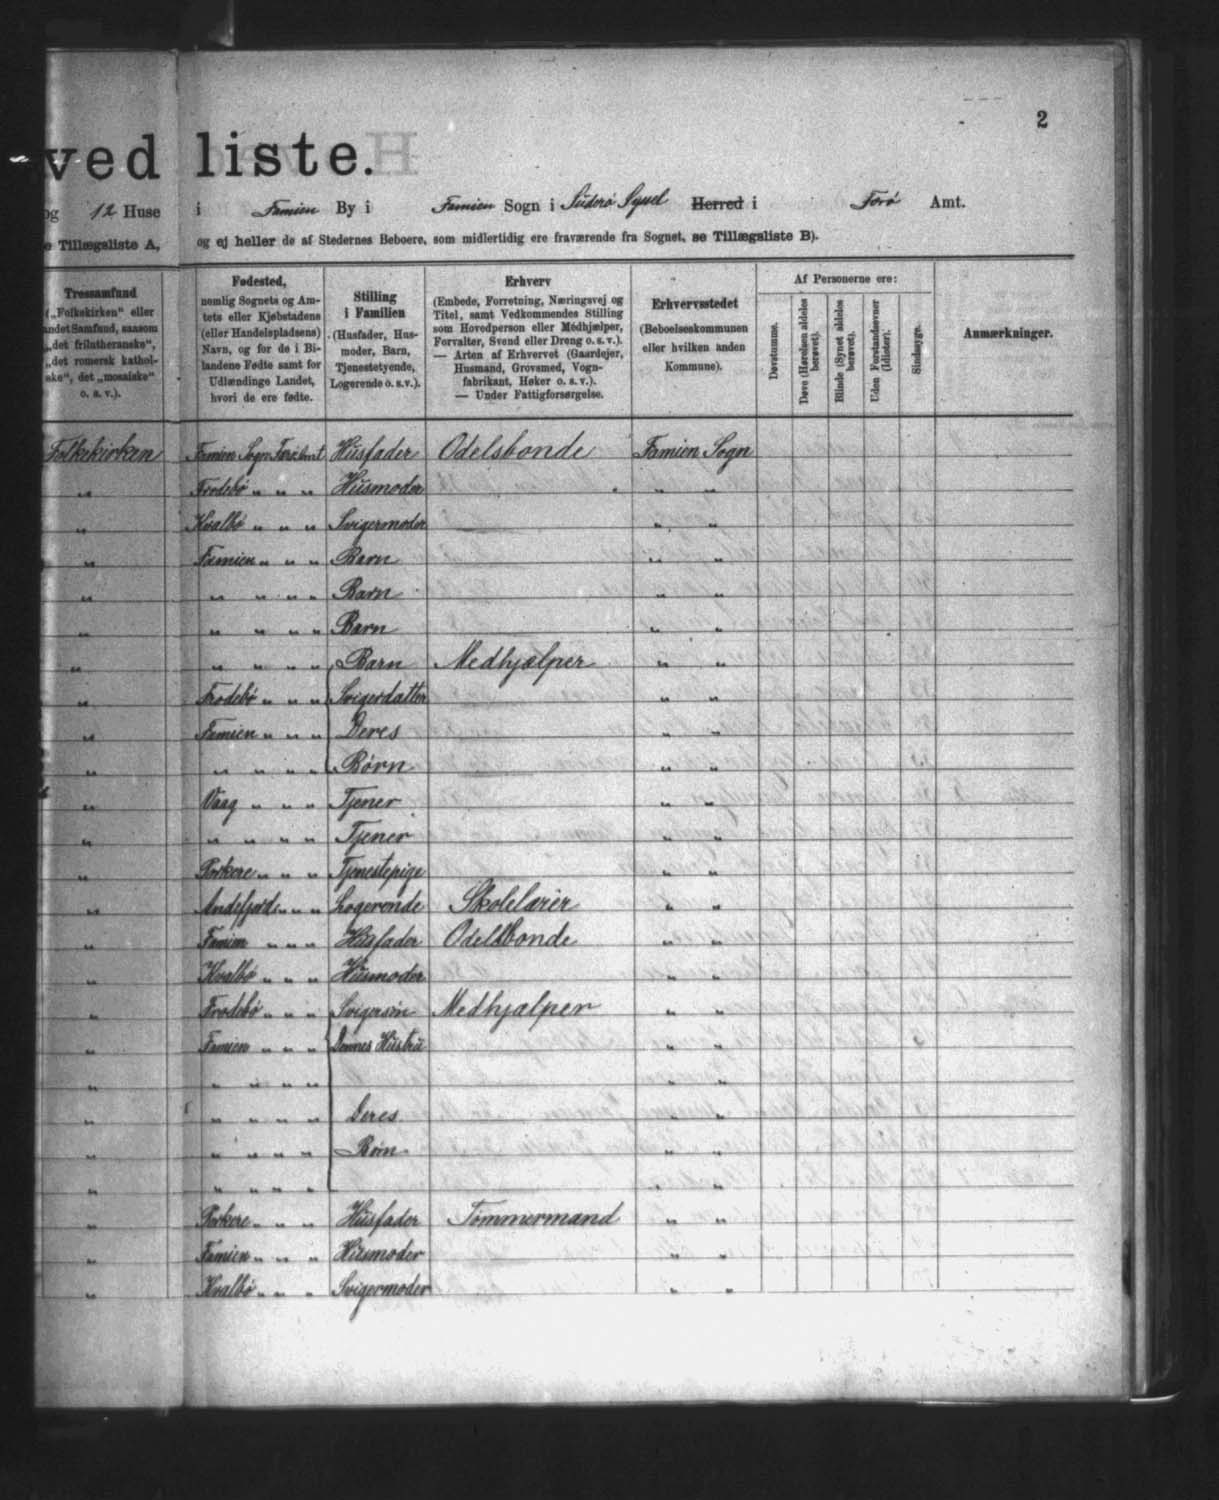 2
ved liste.
og 12 Huse i Famien By i Famien Sogn i Süderø Syssel Herred i Forø Amt.
e Tillægsliste A, og ej heller de af Stedernes Beboere, som midlertidig ere fraværende fra Sognet, se Tillægsliste B).
Trossamfund
(„Folkekirken“ eller
andet Samfund, saasom
„det frilutheranske“,
„det romersk kathol-
ske“, det „mosaiske“
o. s. v.).
Fødested,
nemlig Sognets og Am-
tets eller Kjøbstadens
(eller Handelspladsens)
Navn, og for de i Bi-
landene Fødte samt for
Udlændinge Landet,
hvori de ere fødte.
Stilling
i Familien
(Husfader, Hus-
moder, Barn,
Tjenestetyende,
Logerende o. s. v.).
Erhverv
(Embede, Forretning, Næringsvej og
Titel, samt Vedkommendes Stilling
som Hovedperson eller Medhjælper,
Forvalter, Svend eller Dreng o. s. v.).
— Arten af Erhvervet (Gaardejer,
Husmand, Grovsmed, Vogn-
fabrikant, Høker o. s. v.).
— Under Fattigforsørgelse.
Erhvervsstedet
(Beboelseskommunen
eller hvilken anden
Kommune).
Af Personerne ere:
Døvstumme.
Døve (Hørelsen aldeles
berøvet).
Blinde (Synet aldeles
berøvet).
Uden Forstandsevner
(Idioter).
Sindssyge.
Anmærkninger.
Folkekirken Famien Sogn Forø Amt Husfader Odelsbonde Famien Sogn
" Frodebø " " " Husmoder " "
" Kvalbø " " " Svigermoder " "
" Famien " " " Barn " "
" " " " " Barn " "
" " " " " Barn " "
" " " " " Barn Medhjælper " "
" Frodebø " " " Svigerdatter " "
" Famien " " " Deres " "
" " " " " Børn " "
" Vaag " " " Tjener " "
" " " " " Tjener " "
" Porkere " " " Tjenestepige " "
" Andefjord " " " Logerende Skolelærer " "
" Famien " " " Husfader Odelsbonde " "
" Kvalbø " " " Husmoder " "
" Frodebø " " " Svigersøn Medhjælper " "
" Famien " " " Dennes Hustru " "
" " " " " " "
" " " " " Deres " "
" " " " " Børn " "
" " " " " " "
" Porkere " " " Husfader Tømmermand " "
" Famien " " " Husmoder " "
" Kvalbø " " " Svigermoder " "